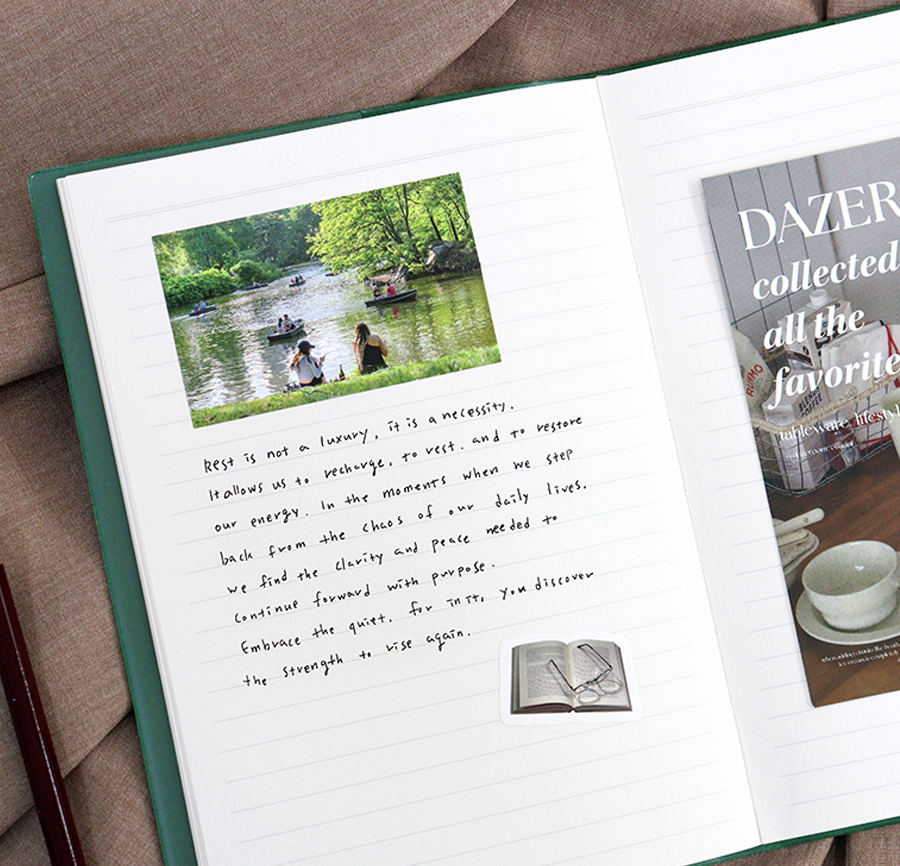 Rest is not a luxury, it is a necessity.
It allows us to recharge, to rest, and to restore
our energy. In the moments when we step
back from the chaos of our daily lives.
we find the clarity and peace needed to
continue forward with purpose.
Embrace the quiet, for in it, you discover
the strength to rise again.
DAZER
collected
all the
favorite
tableware, lifesty
RUMMO
BLEND
COFFEE